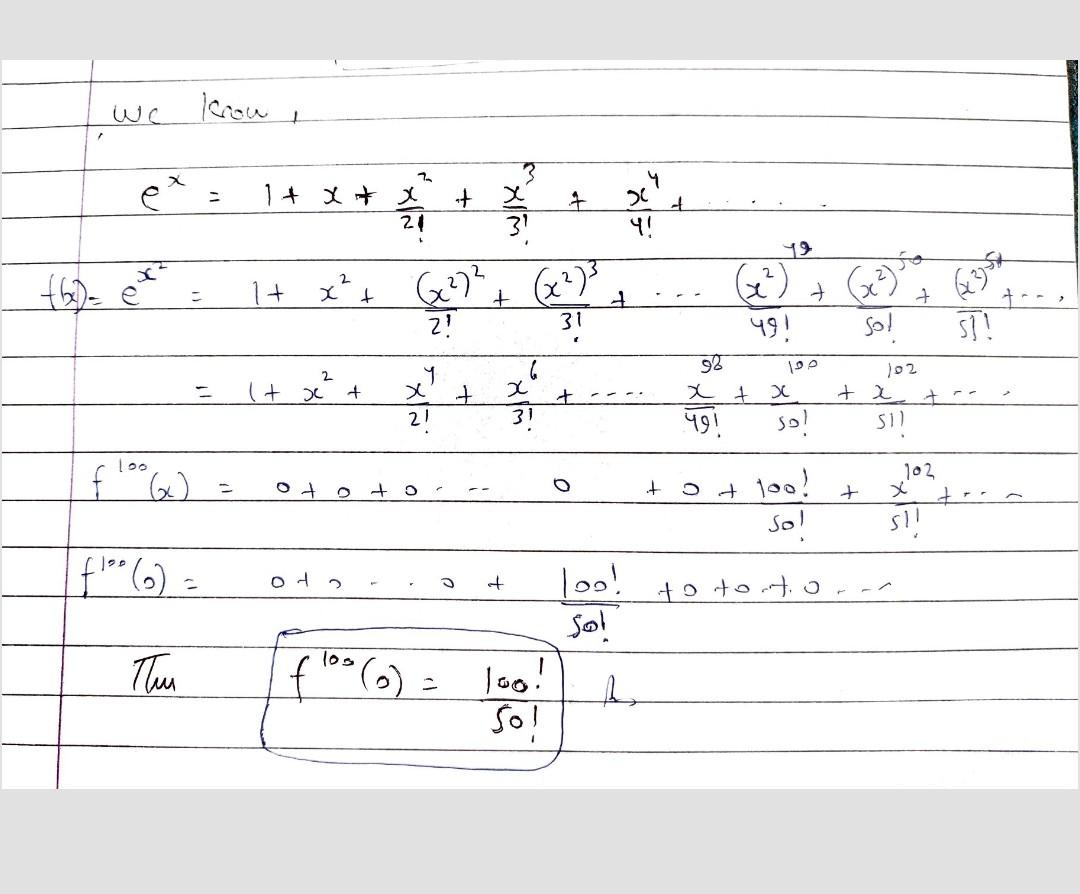 We know,
e^x = 1 + x + x^2/2! + x^3/3! + x^4/4! + ......
f(x) = e^{x^2} = 1 + x^2 + (x^2)^2/2! + (x^2)^3/3! + ... (x^2)^49/49! + (x^2)^50/50! + (x^2)^51/51! + ...
= 1 + x^2 + x^4/2! + x^6/3! + .... x^98/49! + x^100/50! + x^102/51! + ...
f^100(x) = 0 + 0 + 0 .... 0 + 0 + 100!/50! + x^102/51! + ...
f^100(0) = 0 + 0 ... 0 + 100!/50! + 0 + 0 + 0 ...
Thus f^100(0) = 100!/50!